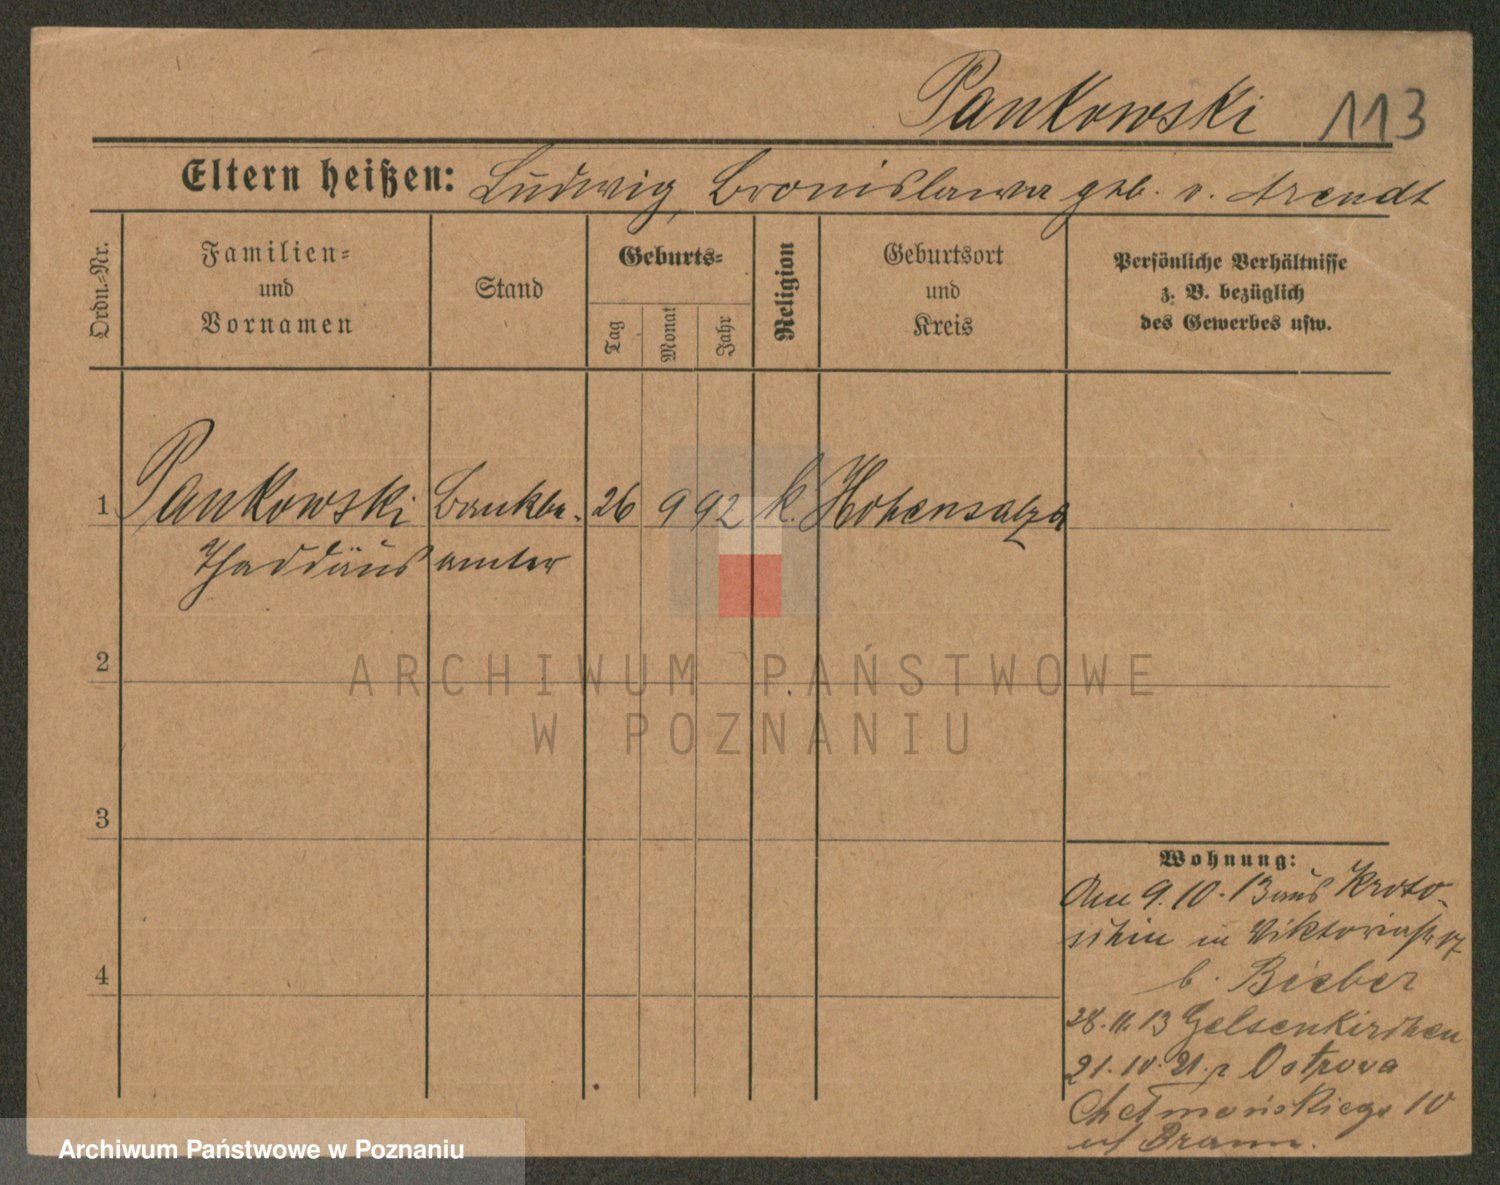 Pankowski 113
Eltern heißen: Ludwig, Bronislawa geb. v. Arendt
Ordn.-Nr.
Familien-
und
Vornamen
Stand
Geburts-
Tag
Monat
Jahr
Religion
Geburtsort
und
Kreis
Persönliche Verhältnisse
z. B. bezüglich
des Gewerbes usw.
1 Pankowski Bankbe- 26 9 92 k. Hohensalza
Thaddäus amter
2
ARCHIWUM PAŃSTWOWE
W POZNANIU
3
4
Wohnung:
Am 9.10.13 aus Kroto-
schin in Viktoriastr 17
b. Bieber
28.11.13 Gelsenkirchen
21.10.21. z Ostrowa
Chełmońskiego 10
Archiwum Państwowe w Poznaniu